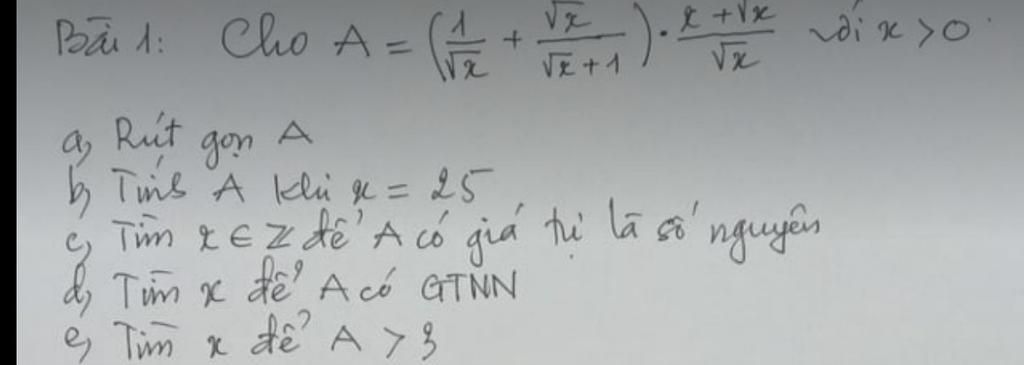 Bài 1: Cho A = (1/√x + √x/(√x + 1)) · (x + √x)/√x với x > 0
a, Rút gọn A
b, Tính A khi x = 25
c, Tìm x ∈ Z để A có giá trị là số nguyên
d, Tìm x để A có GTNN
e, Tìm x để A > 3